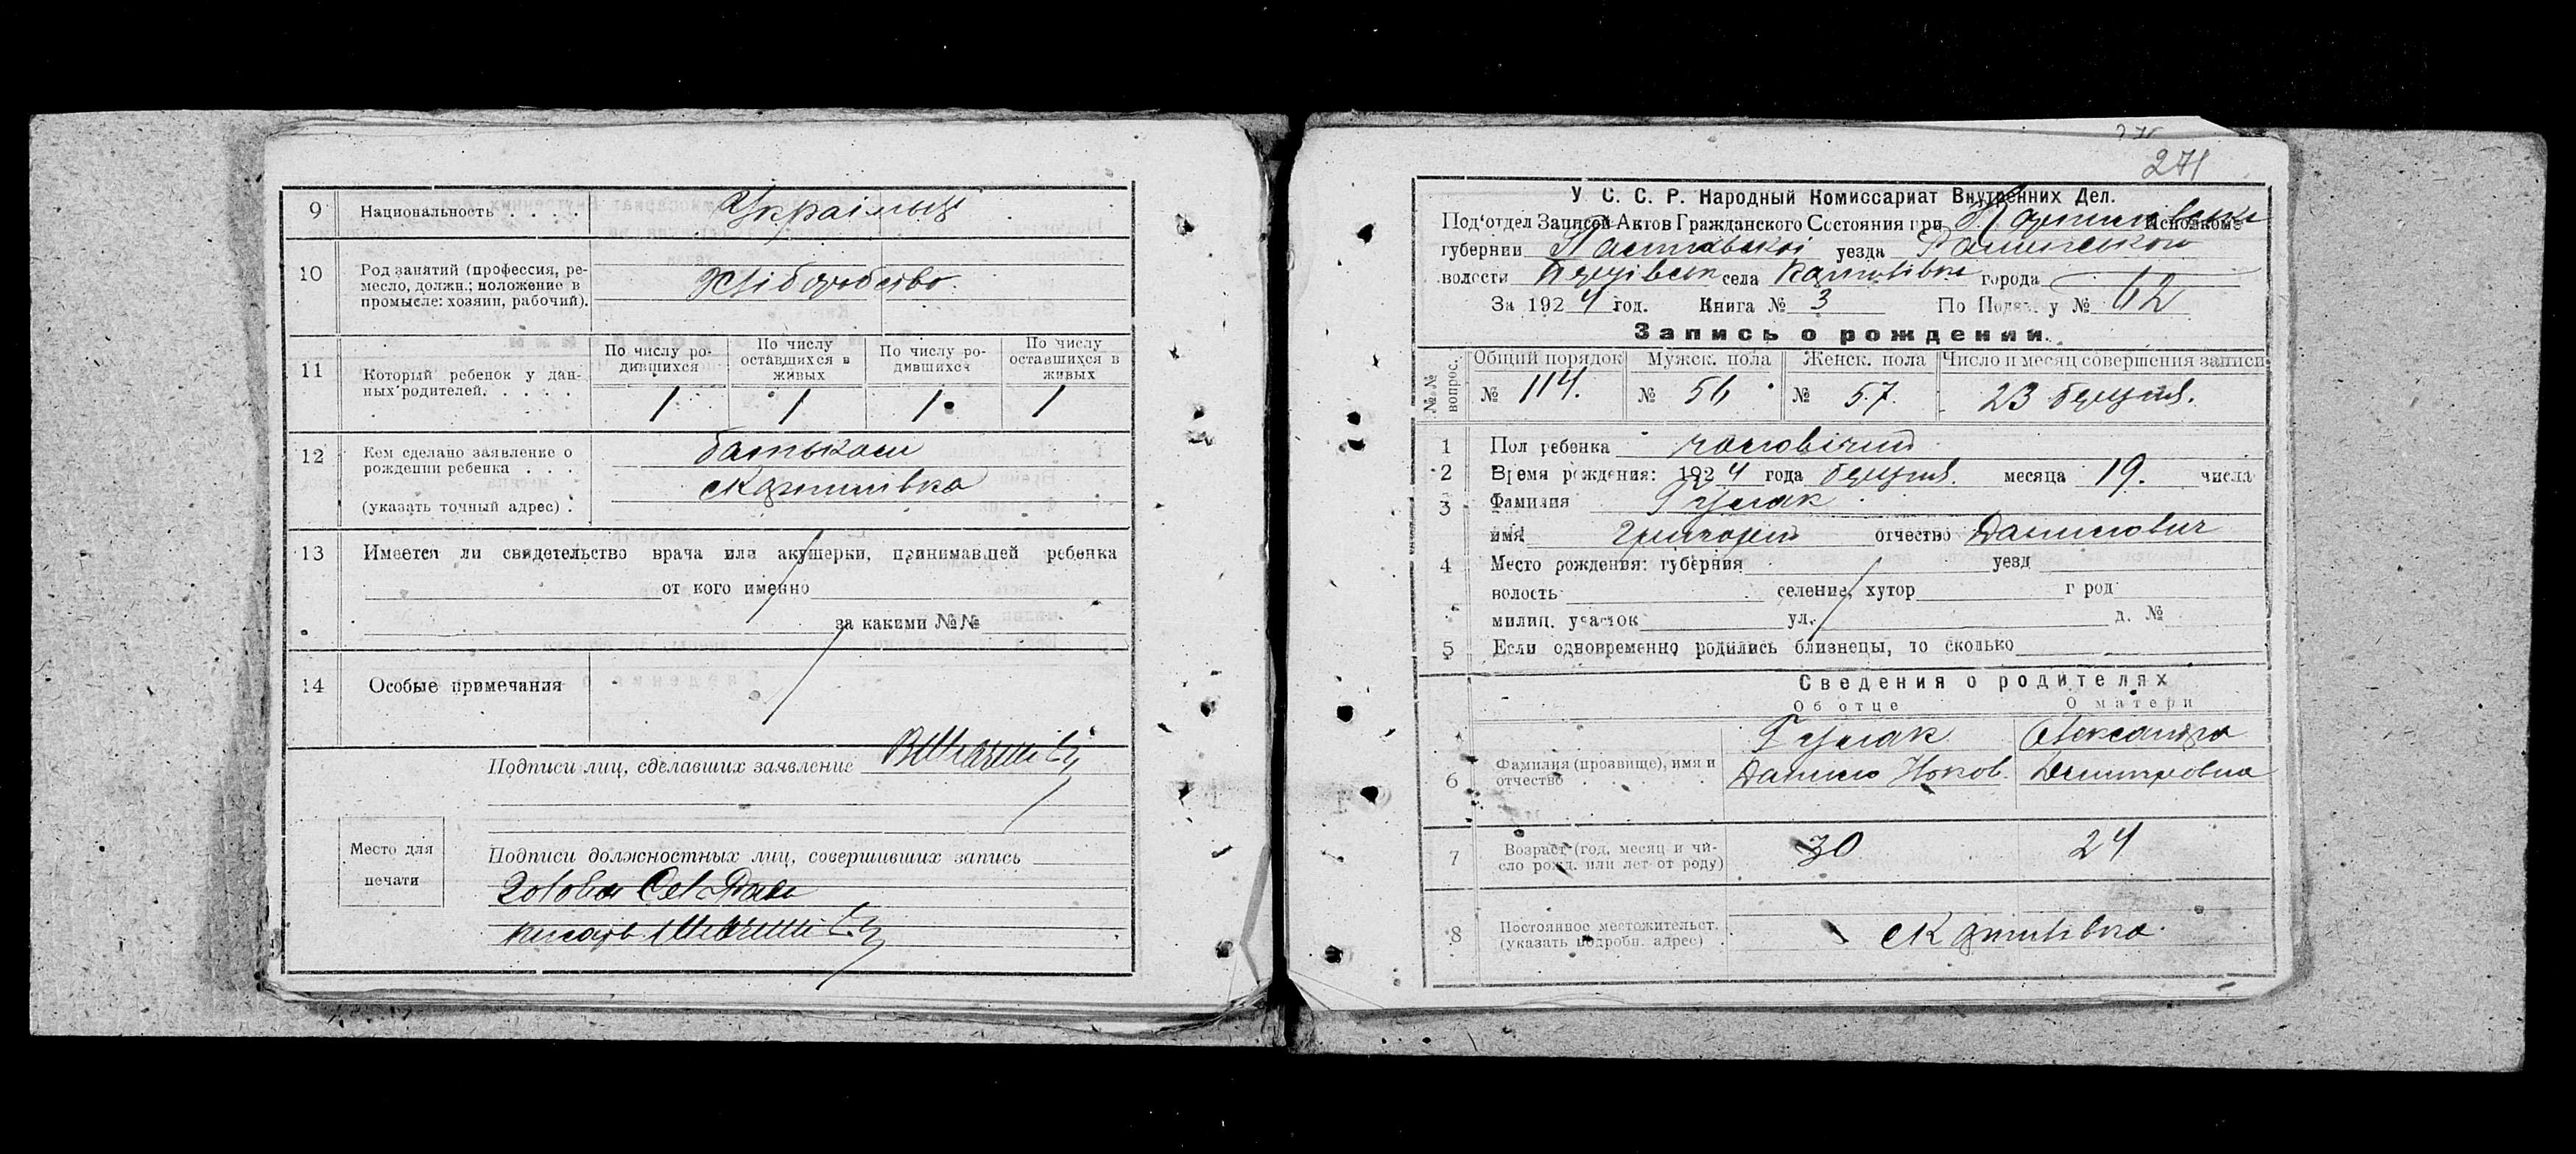 9 Национальность . . . . Українці
10 Род занятий (профессия, ре-
месло, должн.; положение в
промысле: хозяин, рабочий).
Хліборобство.
11 Который ребенок у дан-
ных родителей. . . . .
По числу ро-
дившихся
По числу
оставшихся в
живых
По числу ро-
дившихся
По числу
оставшихся в
живых
1 1 1 1
12 Кем сделано заявление о
рождении ребенка . . .
(указать точный адрес) .
батьком
13 Имеется ли свидетельство врача или акушерки, принимавшей ребенка
от кого именно
за какими №№
14 Особые примечания
Подписи лиц, сделавших заявление
Место для
печати
Подписи должностных лиц, совершивших запись
Голова
писарь
271
У. С. С. Р. Народный Комиссариат Внутренних Дел.
Под'отдел Записей Актов Гражданского Состояния при Исполкоме
губернии Полтавської уезда
волости села города
За 1924 год. Книга № 3 По № 62
Запись о рождении.
№№ вопрос.
Общий порядок Мужск. пола Женск. пола Число и месяц совершения записи
№ 114. № 56 № 57. 23 березня.
1 Пол ребенка чоловічий
2 Время рождения: 1924 года березня. месяца 19. числа
3 Фамилия Гулак
имя Григорий отчество Данилович
4 Место рождения: губерния уезд
волость селение, хутор город
милиц. участок ул. д. №
5 Если одновременно родились близнецы, то сколько
Сведения о родителях
Об отце О матери
6 Фамилия (прозвище), имя и
отчество . . . .
Гулак Олександра
Данило Яков. Дмитровна
7 Возраст (год, месяц и чи-
сло рожд. или лет от роду)
30 24
8 Постоянное местожительст.
(указать подробн. адрес) .